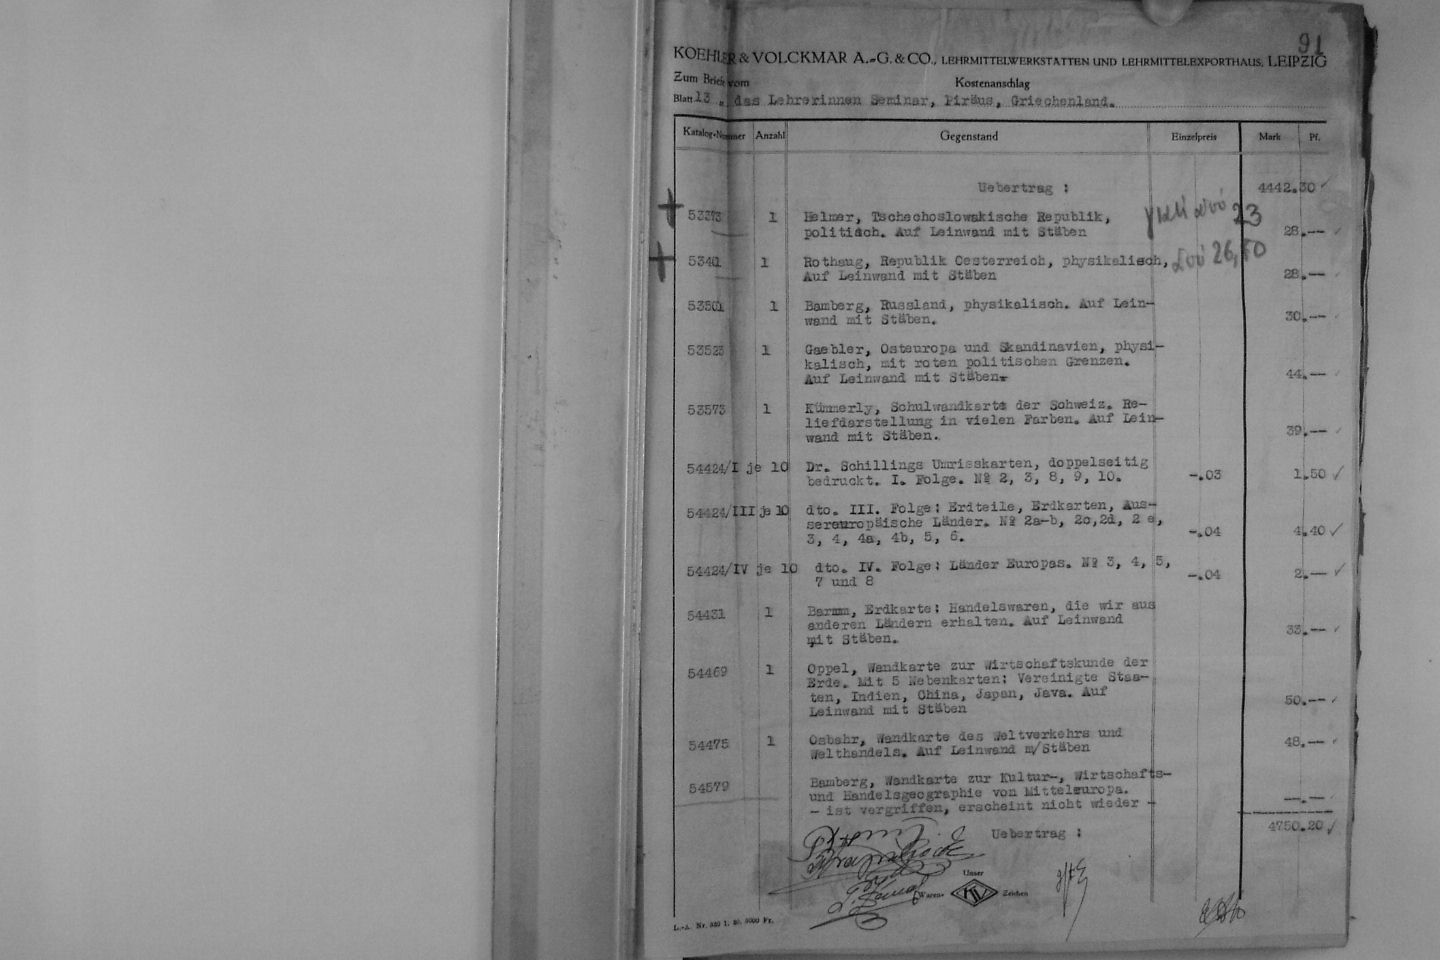 91
KOEHLER & VOLCKMAR A.-G. & CO., LEHRMITTELWERKSTÄTTEN UND LEHRMITTELEXPORTHAUS, LEIPZIG
Zum Briefe vom Kostenanschlag
Blatt 13 „ das Lehrerinnen Seminar, Piräus, Griechenland.
Katalog-Nummer Anzahl Gegenstand Einzelpreis Mark Pf.
Uebertrag : 4442.30
53373 1 Helmer, Tschechoslowakische Republik, 23
politisch. Auf Leinwand mit Stäben 28.--
53401 1 Rothaug, Republik Oesterreich, physikalisch,
Auf Leinwand mit Stäben 28.--
53501 1 Bamberg, Russland, physikalisch. Auf Lein-
wand mit Stäben. 30.--
53523 1 Gaebler, Osteuropa und Skandinavien, physi-
kalisch, mit roten politischen Grenzen.
Auf Leinwand mit Stäben. 44.--
53573 1 Kümmerly, Schulwandkarte der Schweiz. Re-
liefdarstellung in vielen Farben. Auf Lein-
wand mit Stäben. 39.--
54424/I je 10 Dr. Schillings Umrisskarten, doppelseitig
bedruckt. I. Folge. № 2, 3, 8, 9, 10. -.03 1.50
54424/III je 10 dto. III. Folge: Erdteile, Erdkarten, Aus-
sereuropäische Länder. № 2a-b, 2c,2d, 2 e,
3, 4, 4a, 4b, 5, 6. -.04 4.40
54424/IV je 10 dto. IV. Folge: Länder Europas. № 3, 4, 5,
7 und 8 -.04 2.--
54431 1 Barmm, Erdkarte: Handelswaren, die wir aus
anderen Ländern erhalten. Auf Leinwand
mit Stäben. 33.--
54469 1 Oppel, Wandkarte zur Wirtschaftskunde der
Erde. Mit 5 Nebenkarten: Vereinigte Staa-
ten, Indien, China, Japan, Java. Auf
Leinwand mit Stäben 50.--
54475 1 Osbahr, Wandkarte des Weltverkehrs und
Welthandels. Auf Leinwand m/Stäben 48.--
54579 Bamberg, Wandkarte zur Kultur-, Wirtschafts-
und Handelsgeographie von Mitteleuropa.
- ist vergriffen, erscheint nicht wieder - --.--
Uebertrag : 4750.20
Unser
Waren- KV Zeichen